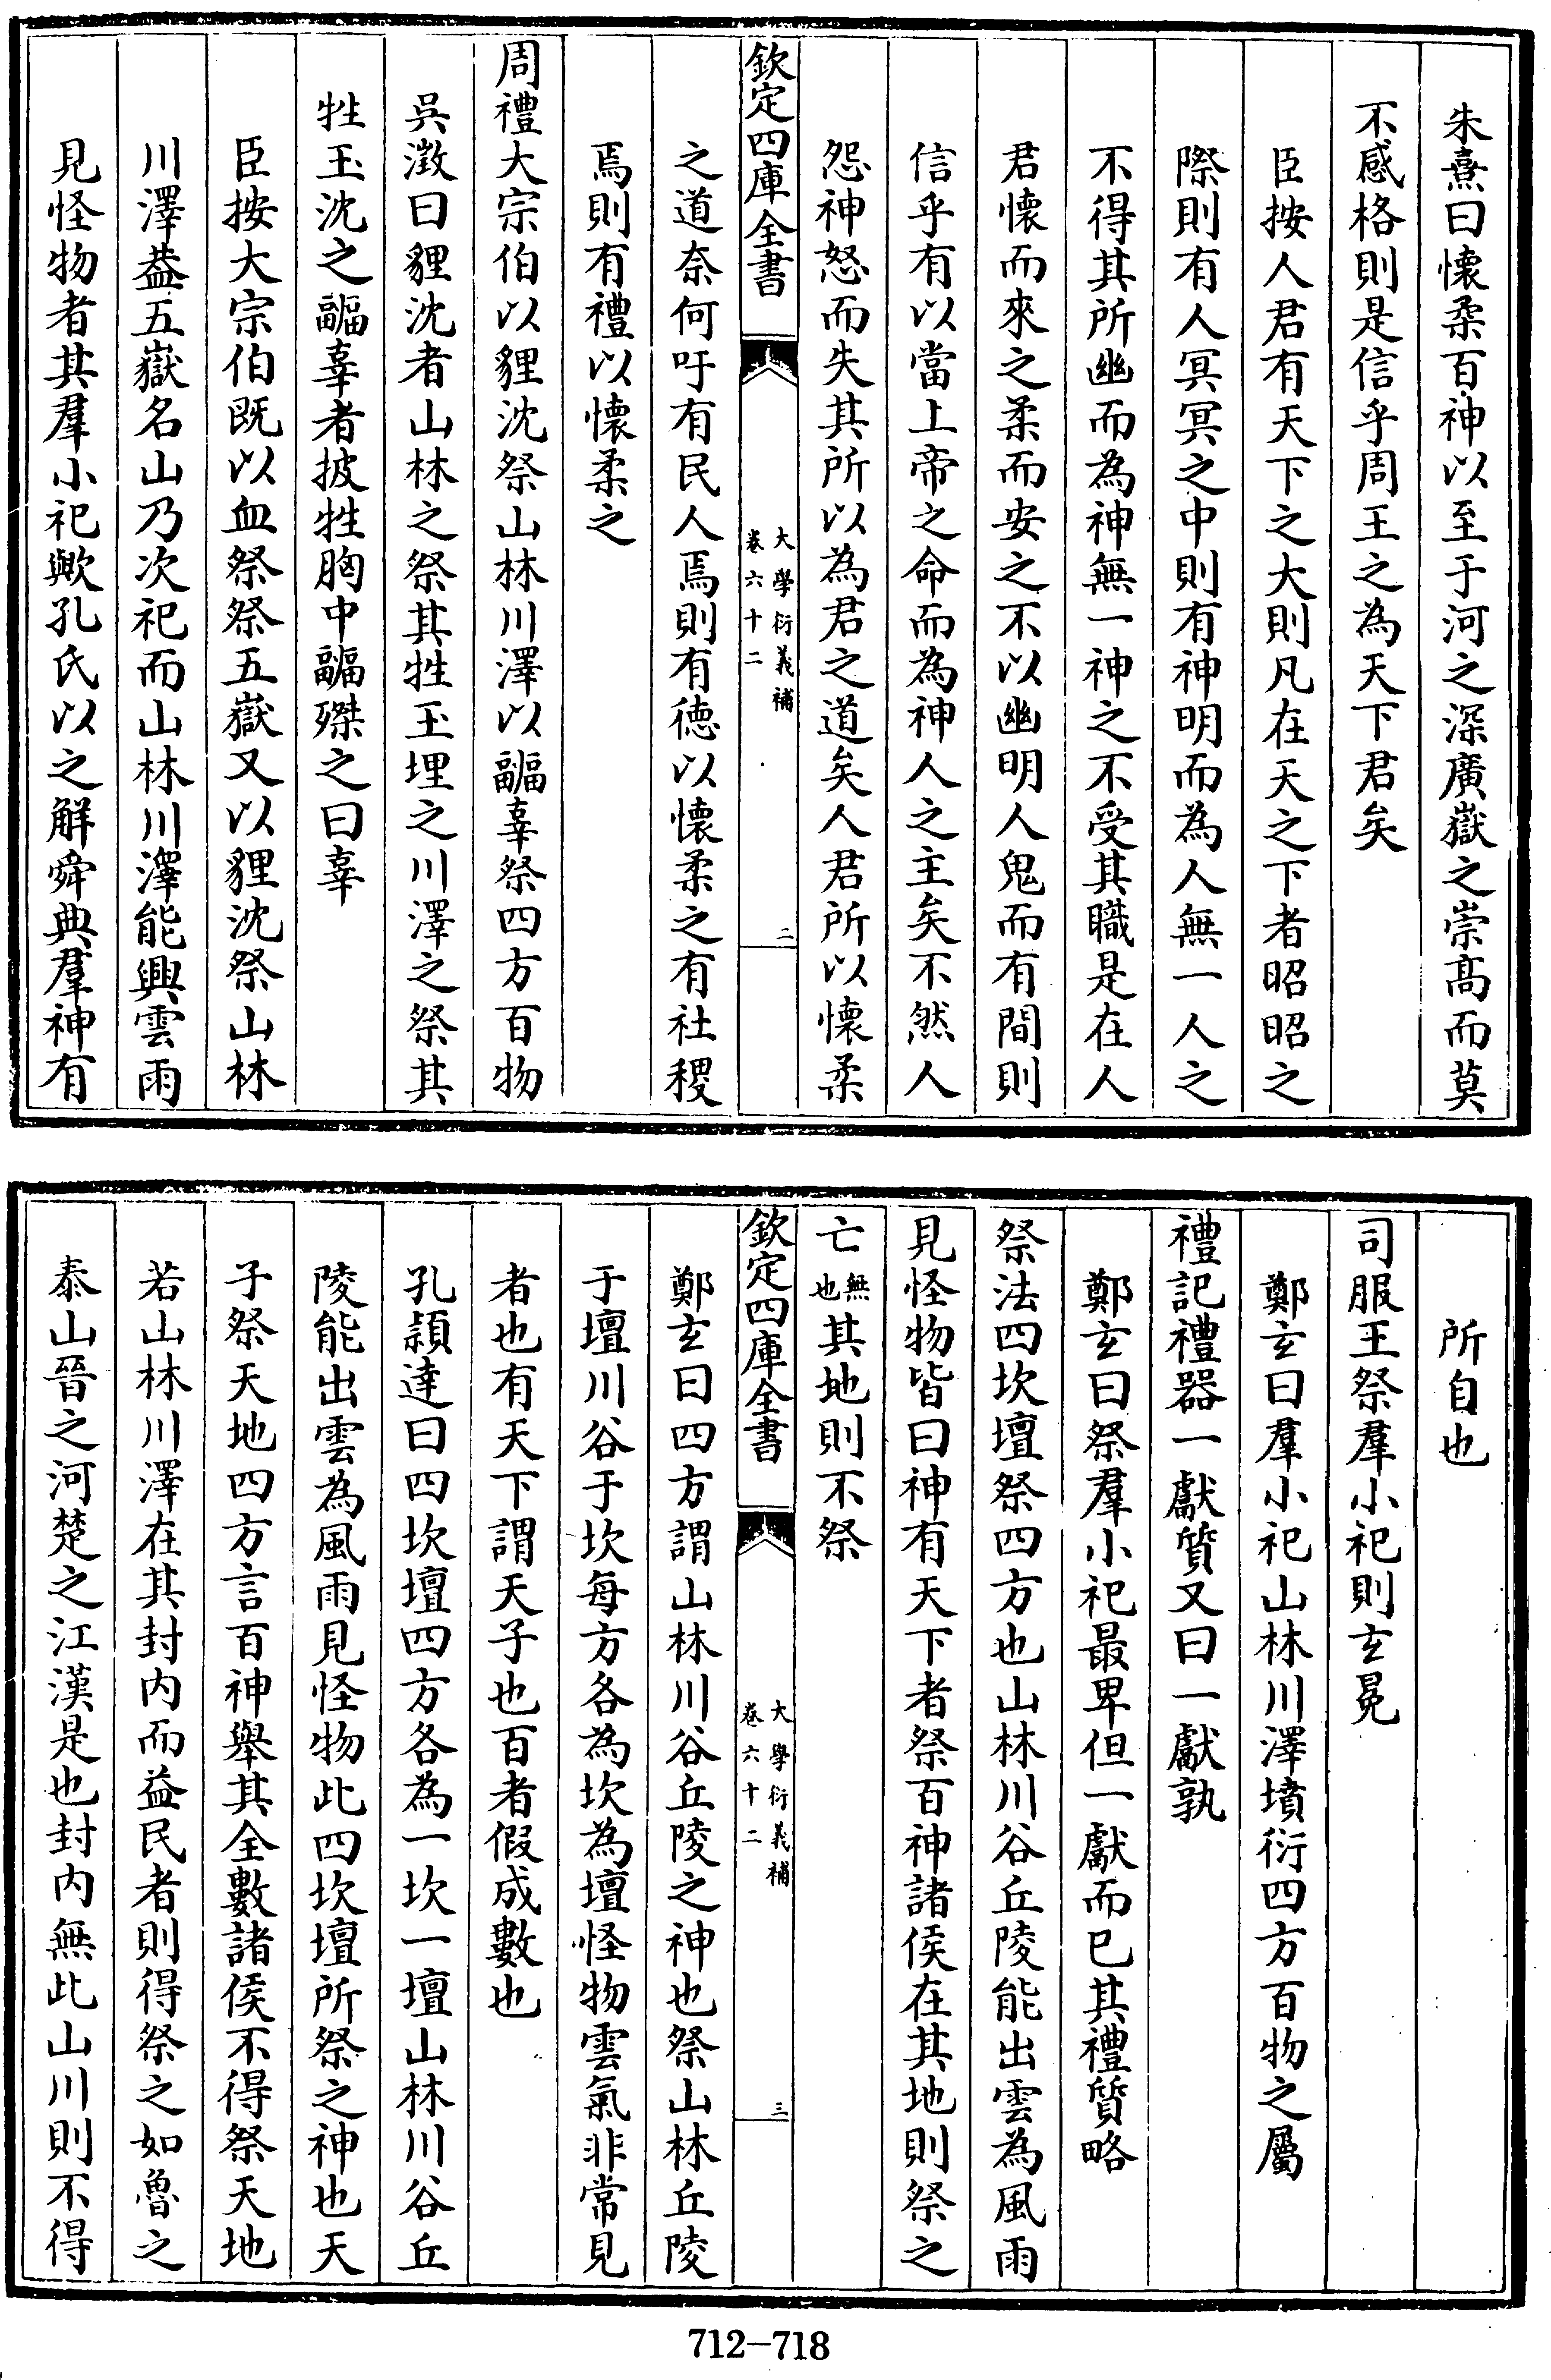 朱熹曰懷柔百神以至于河之深廣嶽之崇髙而莫
不感格則是信乎周王之為天下君矣
臣按人君有天下之大則凡在天之下者昭昭之
際則有人冥冥之中則有神明而為人無一人之
不得其所幽而為神無一神之不受其職是在人
君懷而來之柔而安之不以幽明人鬼而有間則
信乎有以當上帝之命而為神人之主矣不然人
怨神怒而失其所以為君之道矣人君所以懷柔
欽定四庫全書
大學衍義補
卷六十二
二
之道奈何吁有民人焉則有德以懷柔之有社稷
焉則有禮以懷柔之
周禮大宗伯以貍沈祭山林川澤以疈辜祭四方百物
吳澂曰貍沈者山林之祭其牲玉埋之川澤之祭其
牲玉沈之疈辜者披牲胸中疈磔之曰辜
臣按大宗伯既以血祭祭五嶽又以貍沈祭山林
川澤葢五嶽名山乃次祀而山林川澤能興雲雨
見怪物者其羣小祀歟孔氏以之解舜典羣神有
所自也
司服王祭羣小祀則玄冕
鄭玄曰羣小祀山林川澤墳衍四方百物之屬
禮記禮器一獻質又曰一獻孰
鄭玄曰祭羣小祀最卑但一獻而已其禮質略
祭法四坎壇祭四方也山林川谷丘陵能出雲為風雨
見怪物皆曰神有天下者祭百神諸侯在其地則祭之
亡無也其地則不祭
欽定四庫全書
大學衍義補
卷六十二
三
鄭玄曰四方謂山林川谷丘陵之神也祭山林丘陵
于壇川谷于坎每方各為坎為壇怪物雲氣非常見
者也有天下謂天子也百者假成數也
孔頴達曰四坎壇四方各為一坎一壇山林川谷丘
陵能出雲為風雨見怪物此四坎壇所祭之神也天
子祭天地四方言百神舉其全數諸侯不得祭天地
若山林川澤在其封内而益民者則得祭之如魯之
泰山晉之河楚之江漢是也封内無此山川則不得
712-718